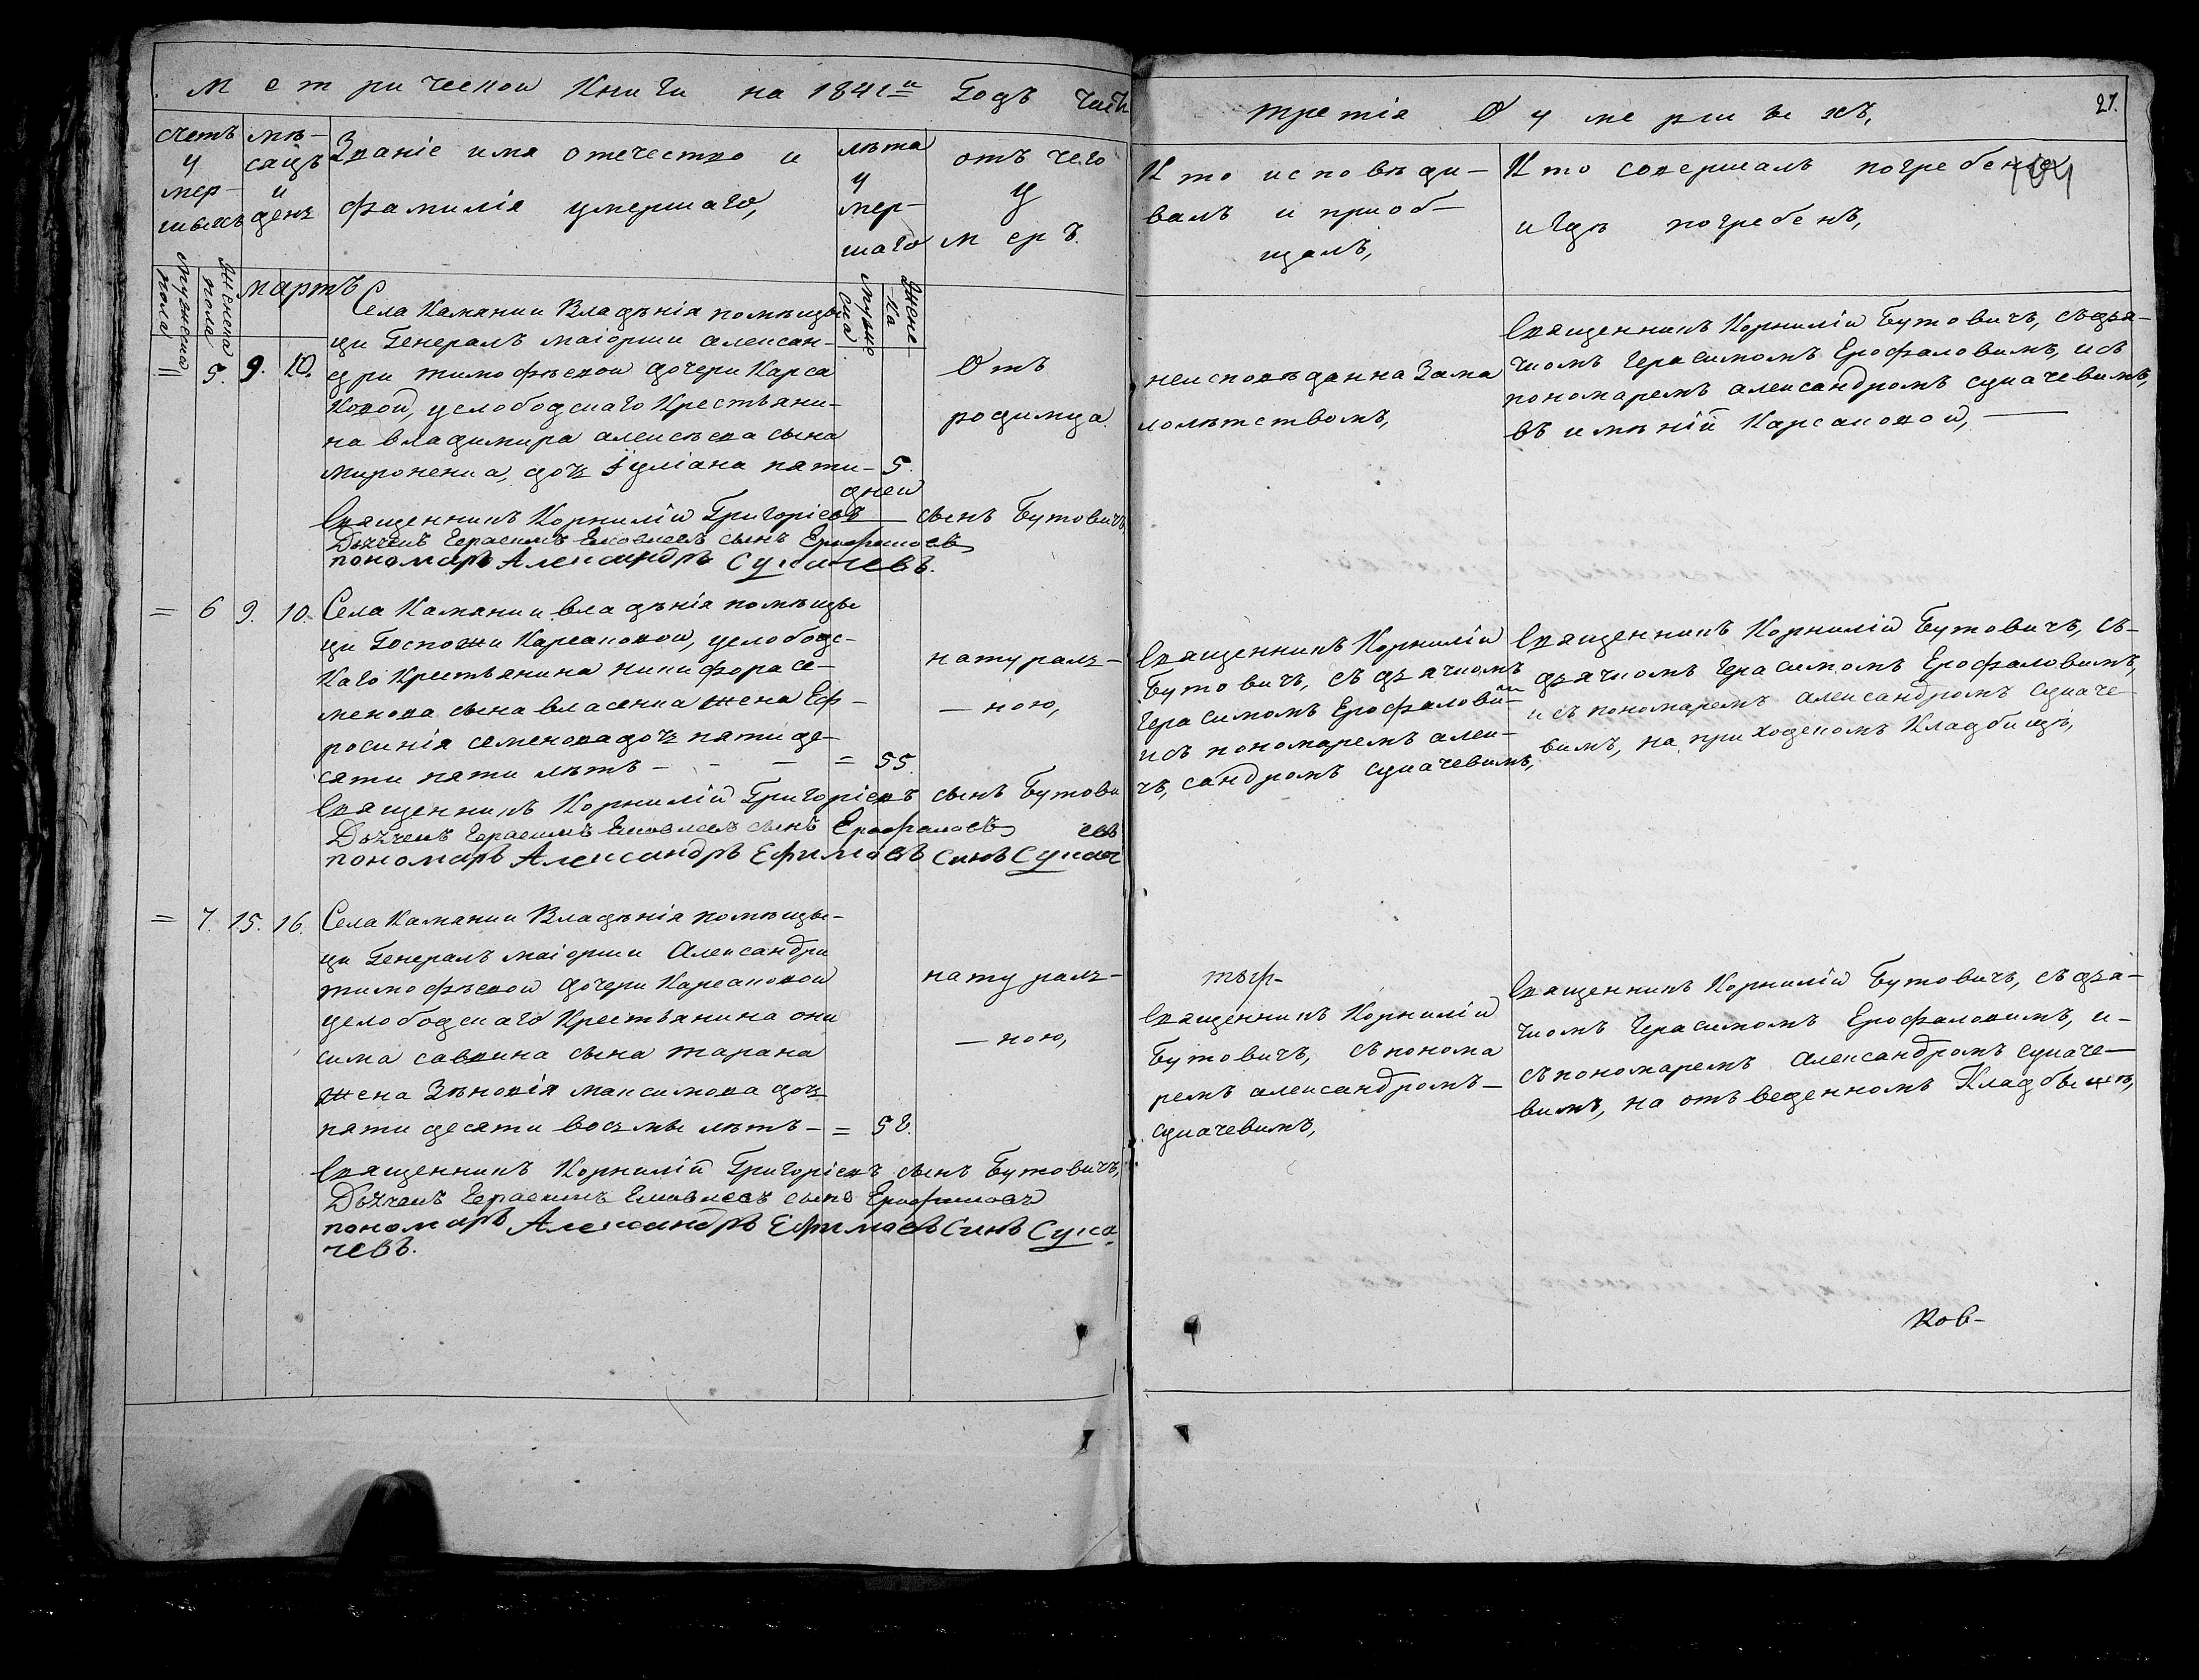 Метрической Книги на 1841й Годъ часть
третія О умершихъ,
27.
104
счетъ умер-шихъ
мѣ-сяцъ и день
Званіе имя отечество и
фамилія умершаго,
лѣта умер-шаго
отъ чего умеръ.
Кто исповѣди-
валъ и приоб-
щалъ,
Кто совершалъ погребеніе
и Гдѣ погребенъ,
Мужеска пола
Женска пола
мартъ
Мужеска
Женска
5. 9. 10.
Села Камянки Владѣнія помѣщи
ци Генералъ маіорши алексан-
дри тимофѣевой дочери Карса
ковой, услободскаго Крестьяни-
на владимира алексѣева сына
мироненка, дочь Іуліана пяти- 5.
дней
Отъ
родимца.
неисповѣданна Зама
лолѣтствомъ,
Священникъ Корнилій Бутовичъ, съдья-
чкомъ Герасимомъ Ерофаловимъ, исъ
пономаремъ александромъ сукачевимъ,
въ имѣній Карсаковой,
Священникъ Корнилій Григоріевъ сынъ Бутовичъ,
Дьячекъ Герасимъ сынъ Ерофаловъ
пономарь Александръ Сукачевъ.
= 6 9. 10.
Села Камянки владѣнія помѣщи
ци Госпожи Карсаковой, услободс-
каго Крестьянина никифора се-
менова сына власенка жена Еф-
росинія семенова дочь пяти де-
сяти пяти лѣтъ - - - = 55.
натурал-
- ною,
Священникъ Корнилій
Бутовичъ, съ дьячкомъ
Герасимомъ Ерофаловимъ
исъ пономаремъ алек-
сандромъ сукачевимъ,
Священникъ Корнилій Бутовичъ, съ-
дьячкомъ Герасимомъ Ерофаловимъ,
и съ пономаремъ александромъ сукаче-
вимъ, на приходском Кладбищѣ,
Священникъ Корнилій Григоріевъ сынъ Бутови
чъ,
Дьячекъ Герасимъ сынъ Ерофаловъ
пономарь Александръ Ефимовъ Синъ Сукач
евъ
= 7. 15. 16.
Села Камянки Владѣнія помѣщи-
ци Генералъ маіорши Александри
тимофѣевой дочери Карсаковой
услободскаго Крестьянина они
сима саввина сына тарана
жена Зѣновія максимова дочь
пяти десяти восьмы лѣтъ - = 58.
натурал-
- ною,
Священникъ Корнилій
Бутовичъ, съ понома
ремъ александромъ-
сукачевимъ,
Священникъ Корнилій Бутовичъ, съ дья-
чкомъ Герасимомъ Ерофаловимъ, и-
съ пономаремъ Александромъ сукаче-
вимъ, на отъведенномъ Кладбыщѣ,
Священникъ Корнилій Григоріевъ сынъ Бутовичъ,
Дьячекъ Герасимъ сынъ Ерофаловъ
пономарь Александръ Ефимовъ Синъ Сука
чевъ.
Ков-